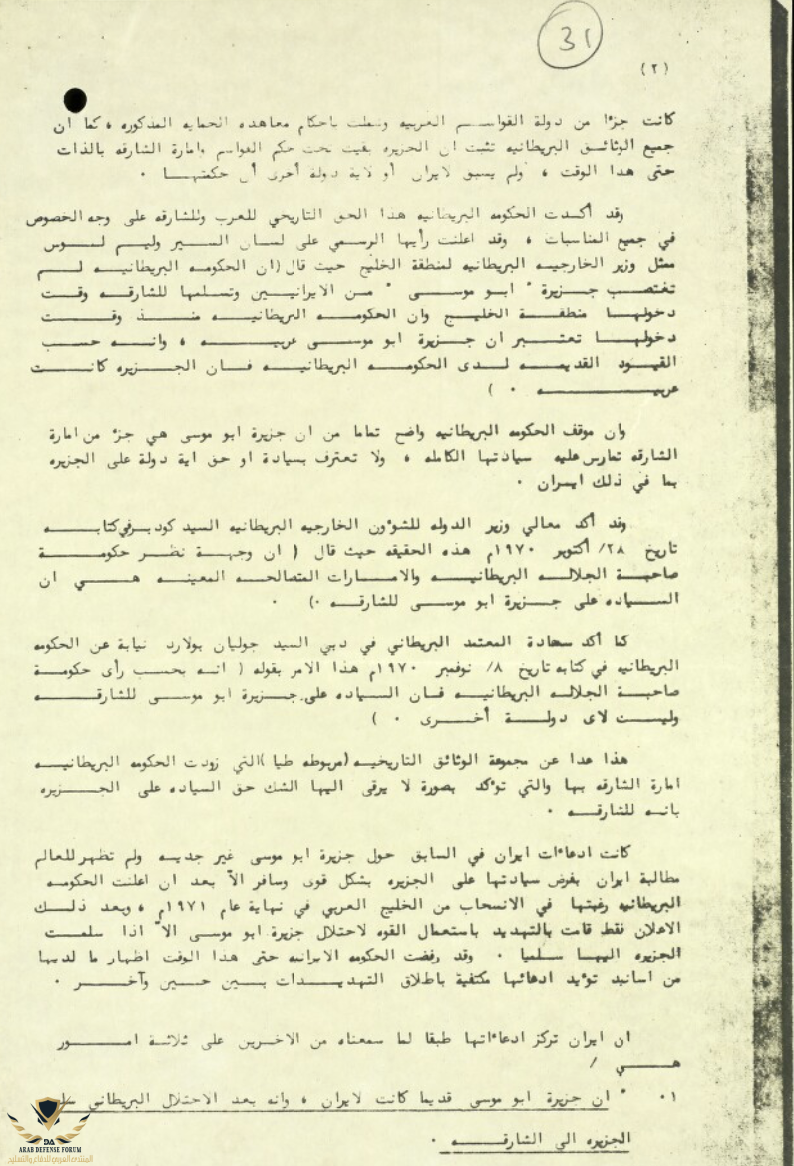 31
(٢)
كانت جزءا من دولة القواسم العربيه وشملت باحكام معاهده الحمايه المذكوره ، كما ان
جميع الوثائق البريطانيه تثبت ان الجزيره بقيت تحت حكم القواسم وامارة الشارقه بالذات
حتى هذا الوقت ، ولم يسبق لايران أو لاية دولة أخرى أن حكمتها .
وقد أكدت الحكومه البريطانيه هذا الحق التاريخي للعرب وللشارقه على وجه الخصوص
في جميع المناسبات ، وقد اعلنت رأيها الرسمي على لسان السير وليم لوس
ممثل وزير الخارجيه البريطانيه لمنطقة الخليج حيث قال (ان الحكومه البريطانيه لم
تغتصب جزيرة " ابو موسى " من الايرانيين وتسلمها للشارقه وقت
دخولها منطقة الخليج وان الحكومه البريطانيه منذ وقت
دخولها تعتبر ان جزيرة ابو موسى عربيه ، وانه حسب
القيود القديمه لدى الحكومه البريطانيه فان الجزيره كانت
عربيه . )
وان موقف الحكومه البريطانيه واضح تماما من ان جزيرة ابو موسى هي جزء من امارة
الشارقه تمارس عليه سيادتها الكامله ، ولا تعترف بسيادة او حق اية دولة على الجزيره
بما في ذلك ايران .
وقد أكد معالي وزير الدوله للشؤون الخارجيه البريطانيه السيد كودبر في كتابه
تاريخ ٢٨/ أكتوبر ١٩٧٠م هذه الحقيقه حيث قال ( ان وجهة نظر حكومة
صاحبة الجلاله البريطانيه والامارات المتصالحه المعينه هي ان
السياده على جزيرة ابو موسى للشارقه .) .
كما أكد سعادة المعتمد البريطاني في دبي السيد جوليان بولارد نيابة عن الحكومه
البريطانيه في كتابه تاريخ ٨/ نوفمبر ١٩٧٠م هذا الامر بقوله ( انه بحسب رأى حكومة
صاحبة الجلاله البريطانيه فان السياده على جزيرة ابو موسى للشارقه
وليست لاى دولة أخرى . )
هذا عدا عن مجموعة الوثائق التاريخيه (مربوطه طيا )التي زودت الحكومه البريطانيه
امارة الشارقه بها والتي تؤكد بصورة لا يرقى اليها الشك حق السياده على الجزيره
بانه للشارقه .
كانت ادعاءات ايران في السابق حول جزيرة ابو موسى غير جديه ولم تظهر للعالم
مطالبة ايران بفرض سيادتها على الجزيره بشكل قوى وسافر الا بعد ان اعلنت الحكومه
البريطانيه رغبتها في الانسحاب من الخليج العربي في نهاية عام ١٩٧١م ، وبعد ذلك
الاعلان فقط قامت بالتهديد باستعمال القوه لاحتلال جزيرة ابو موسى الا اذا سلمت
الجزيره اليها سلميا . وقد رفضت الحكومه الايرانيه حتى هذا الوقت اظهار ما لديها
من اسانيد تؤيد ادعائها مكتفية باطلاق التهديدات بين حين وآخر .
ان ايران تركز ادعاءاتها طبقا لما سمعناه من الاخرين على ثلاثة امور
هي /
١. " ان جزيرة ابو موسى قديما كانت لايران ، وانه بعد الاحتلال البريطاني
الجزيره الى الشارقه .
DA
ARAB DEFENSE FORUM
المنتدى العربي للدفاع والتسليح